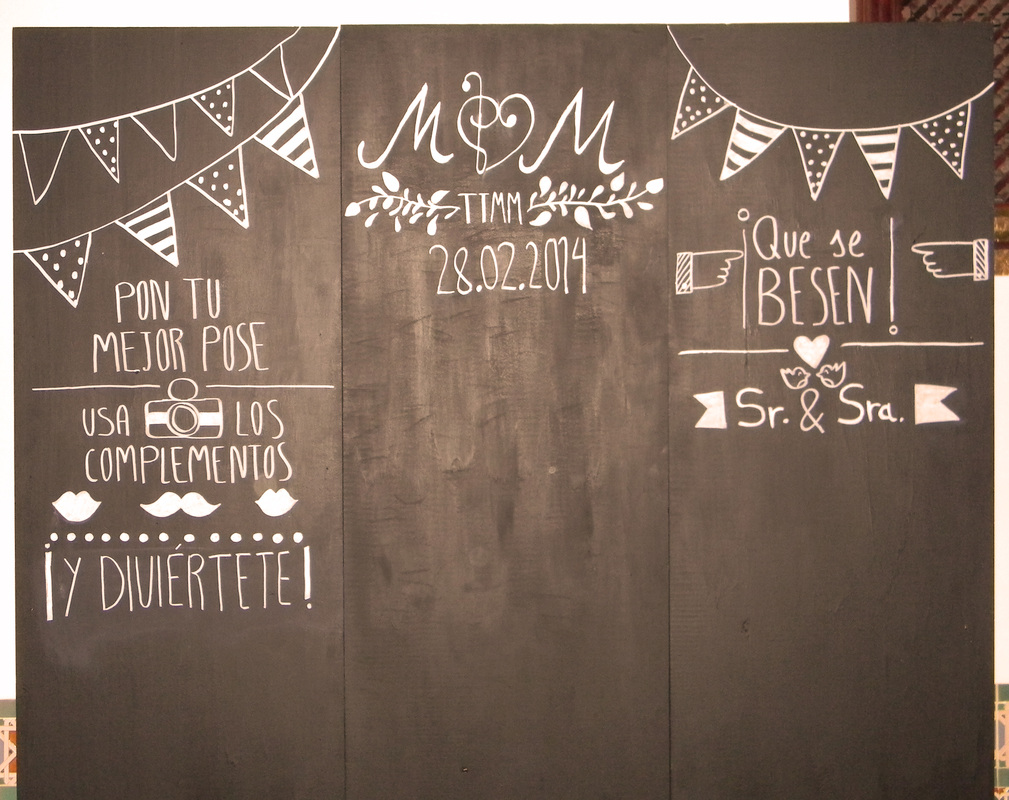 PON TU
MEJOR POSE
USA LOS
COMPLEMENTOS
¡Y DIVIÉRTETE!
M M
TTMM
28.02.2014
¡Que se
BESEN!
Sr. & Sra.